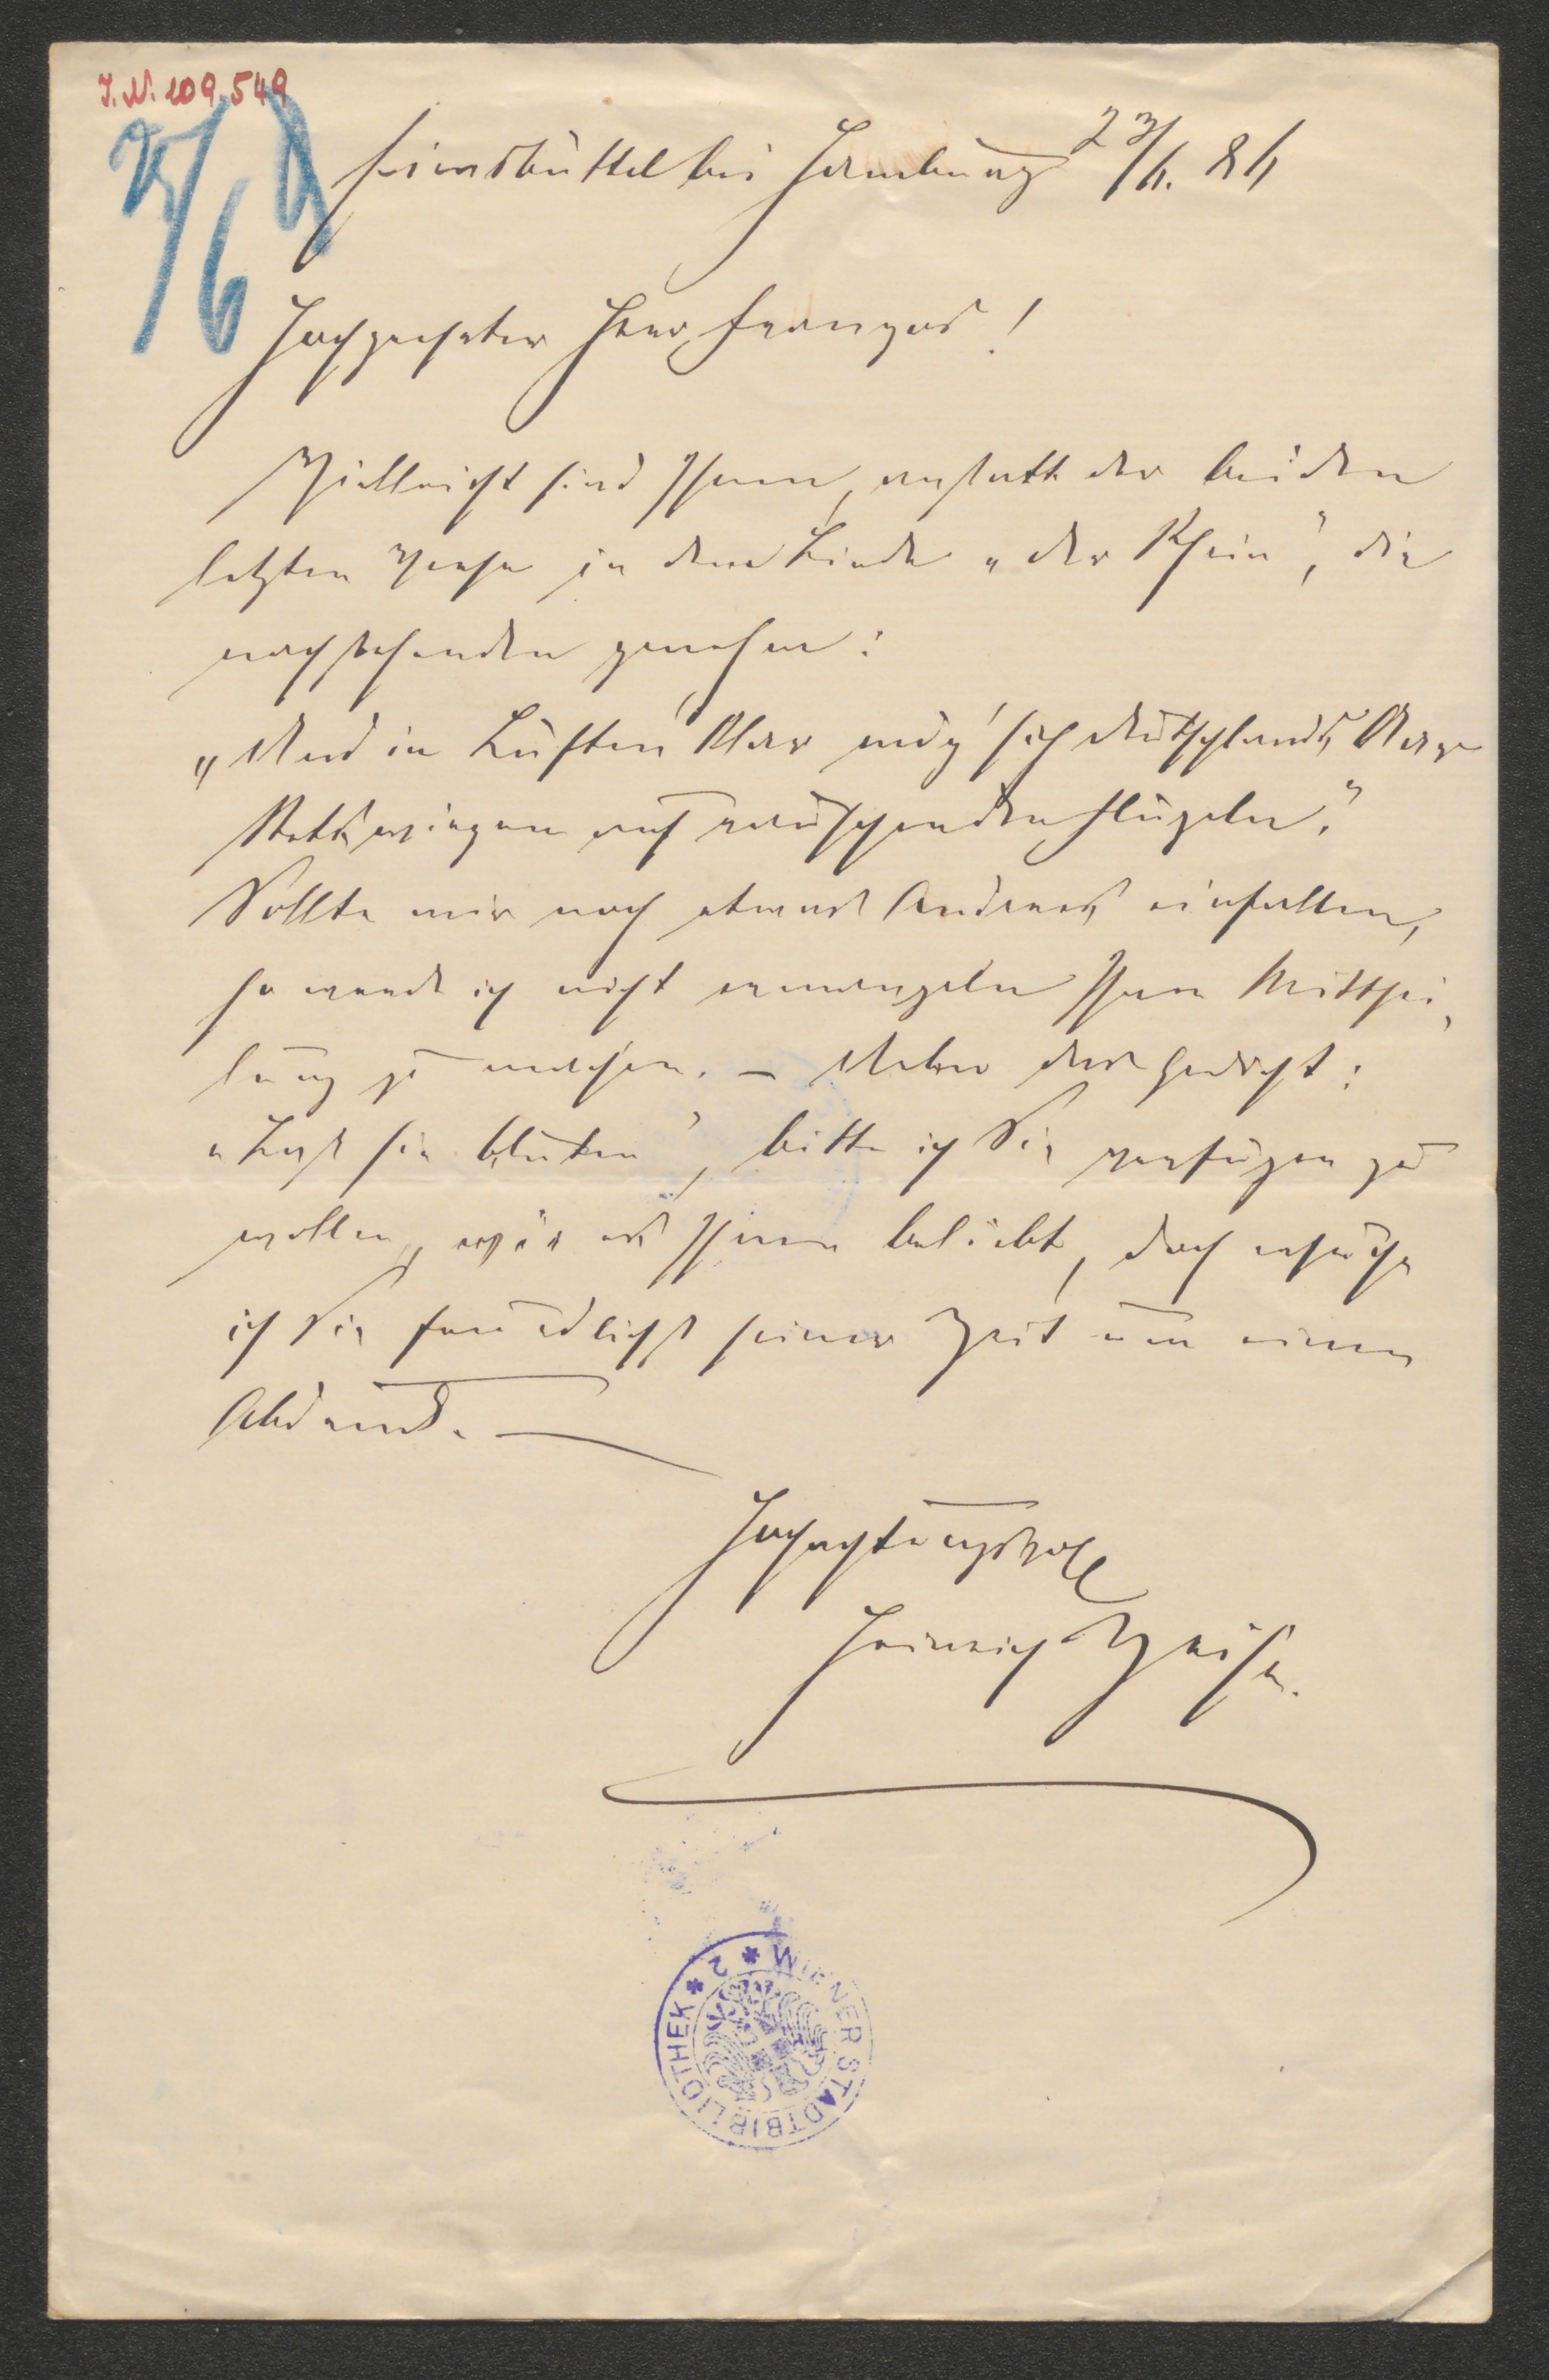 I. N. 109.549
Eimsbüttel bei Hamburg 23/6. 86
Hochgeehrter Herr Franzos!
Vielleicht sind Ihnen, anstatt der beiden
letzten Verse in dem Liede „der Rhein“, die
nachstehenden genehm:
„Und in Lüften klar mög' sich Deutschlands Aar
Stets wiegen auf rauschenden Flügeln.“
Sollte mir noch etwas Anderes einfallen,
so werde ich nicht ermangeln Ihnen Mitthei-
lung zu machen. – Ueber das Gedicht:
„Laß sie bluten“, bitte ich Sie verfügen zu
wollen, wie es Ihnen beliebt, doch ersuche
ich Sie freundlichst seiner Zeit um einen
Abdruck. —
Hochachtungsvoll
Heinrich Zeise.
WIENER STADTBIBLIOTHEK * 2 *